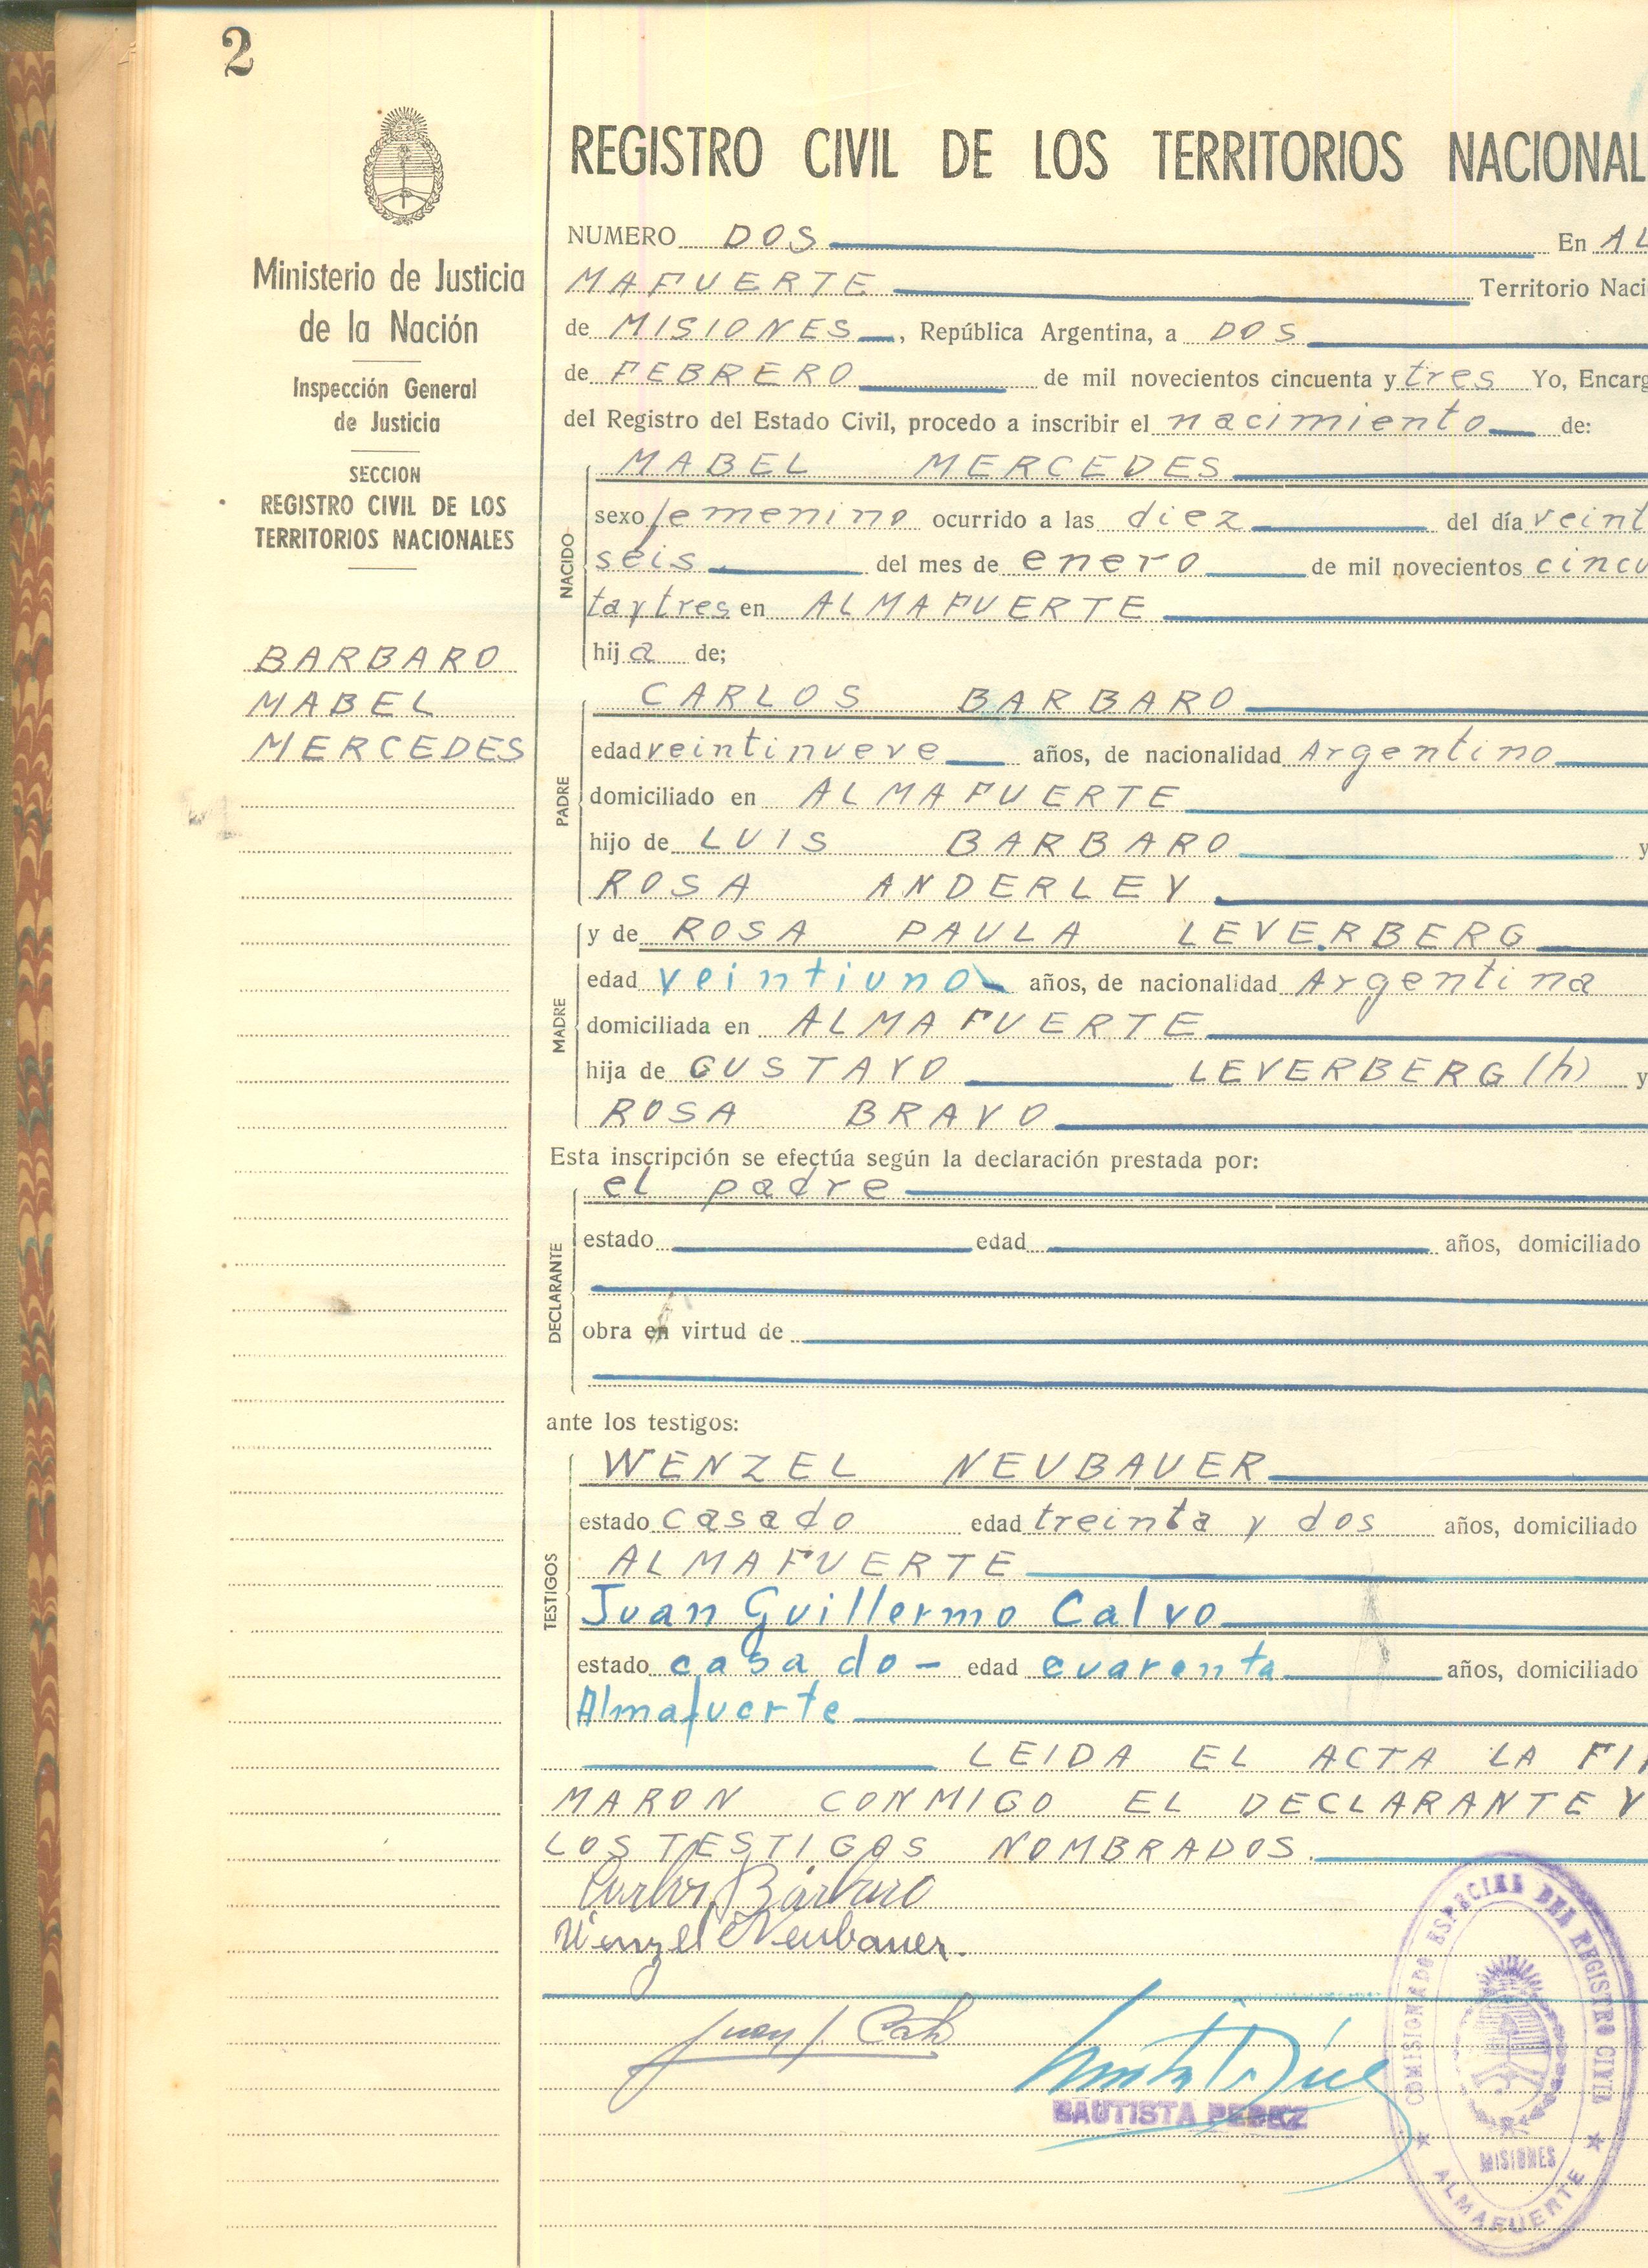 2
Ministerio de Justicia
de la Nación
Inspección General
de Justicia
SECCION
REGISTRO CIVIL DE LOS
TERRITORIOS NACIONALES
BARBARO
MABEL
MERCEDES
REGISTRO CIVIL DE LOS TERRITORIOS NACIONAL
NUMERO DOS En AL
MAFUERTE Territorio Naci
de MISIONES, República Argentina, a DOS
de FEBRERO de mil novecientos cincuenta y tres Yo, Encarg
del Registro del Estado Civil, procedo a inscribir el nacimiento de:
NACIDO
MABEL MERCEDES
sexo femenino ocurrido a las diez del día veint
séis del mes de enero de mil novecientos cincu
ta y tres en ALMAFUERTE
hija de;
PADRE
CARLOS BARBARO
edad veintinueve años, de nacionalidad Argentino
domiciliado en ALMAFUERTE
hijo de LUIS BARBARO y
ROSA ANDERLEY
MADRE
y de ROSA PAULA LEVERBERG
edad veintiuno años, de nacionalidad Argentina
domiciliada en ALMAFUERTE
hija de GUSTAVO LEVERBERG (h) y
ROSA BRAVO
Esta inscripción se efectúa según la declaración prestada por:
DECLARANTE
el padre
estado edad años, domiciliado
obra en virtud de
ante los testigos:
TESTIGOS
WENZEL NEUBAUER
estado casado edad treinta y dos años, domiciliado
ALMAFUERTE
Juan Guillermo Calvo
estado casado - edad cuarenta años, domiciliado
Almafuerte
LEIDA EL ACTA LA FIR
MARON CONMIGO EL DECLARANTE Y
LOS TESTIGOS NOMBRADOS.
Carlos Bárbaro
Wenzel Neubauer.
BAUTISTA PEREZ
COMISIONADO ESPECIAL DEL REGISTRO CIVIL
MISIONES
★ ALMAFUERTE ★